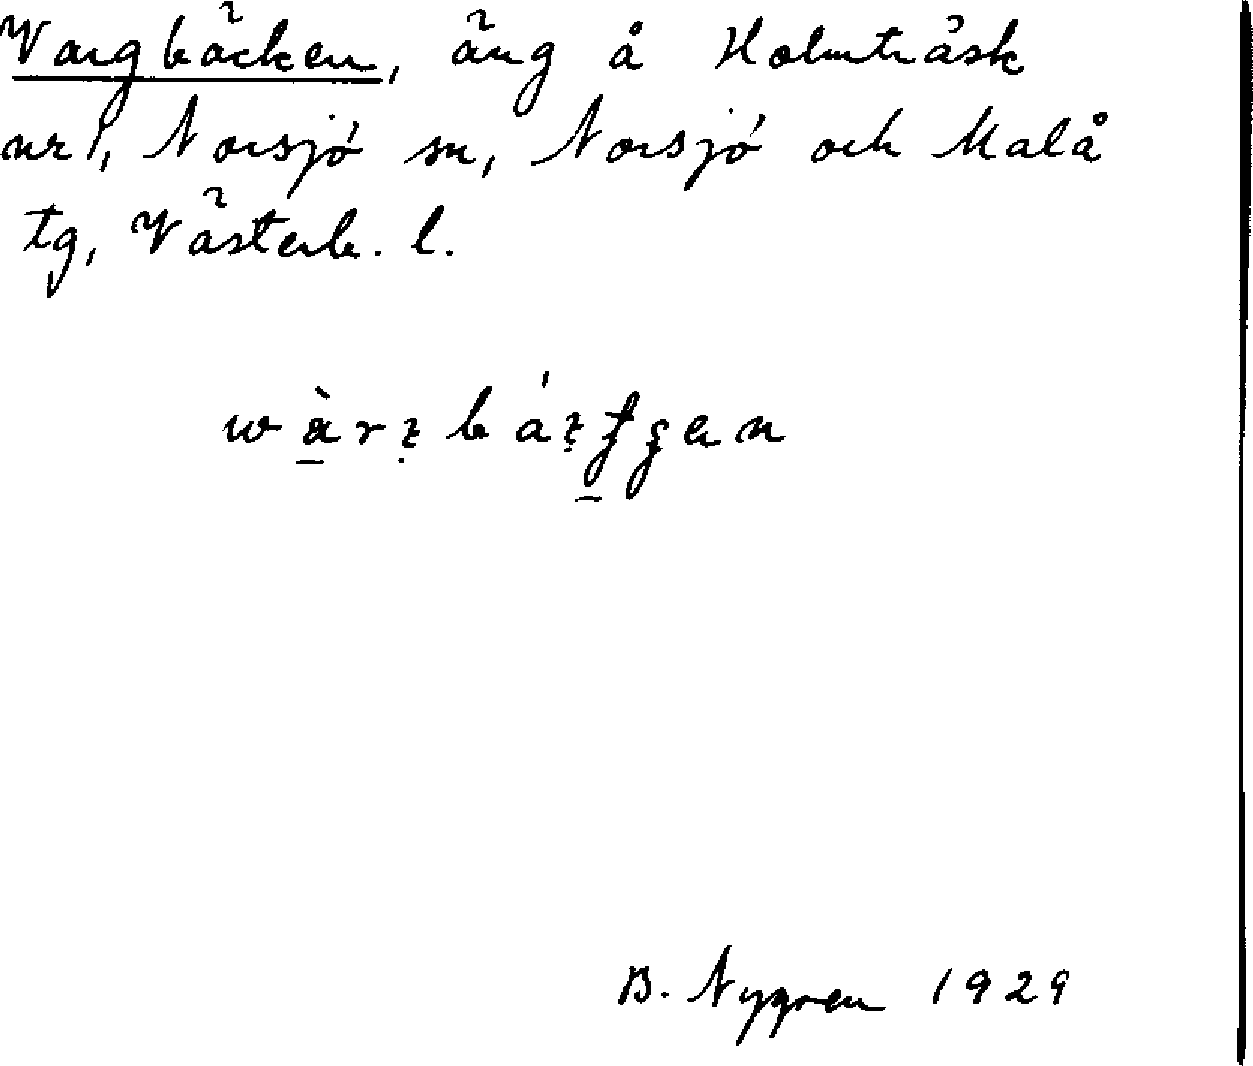 Vargbäcken, äng å Holmträsk
nr 1, Norsjö sn, Norsjö och Malå
tg, Västerb. l.
B. Nygren 1929